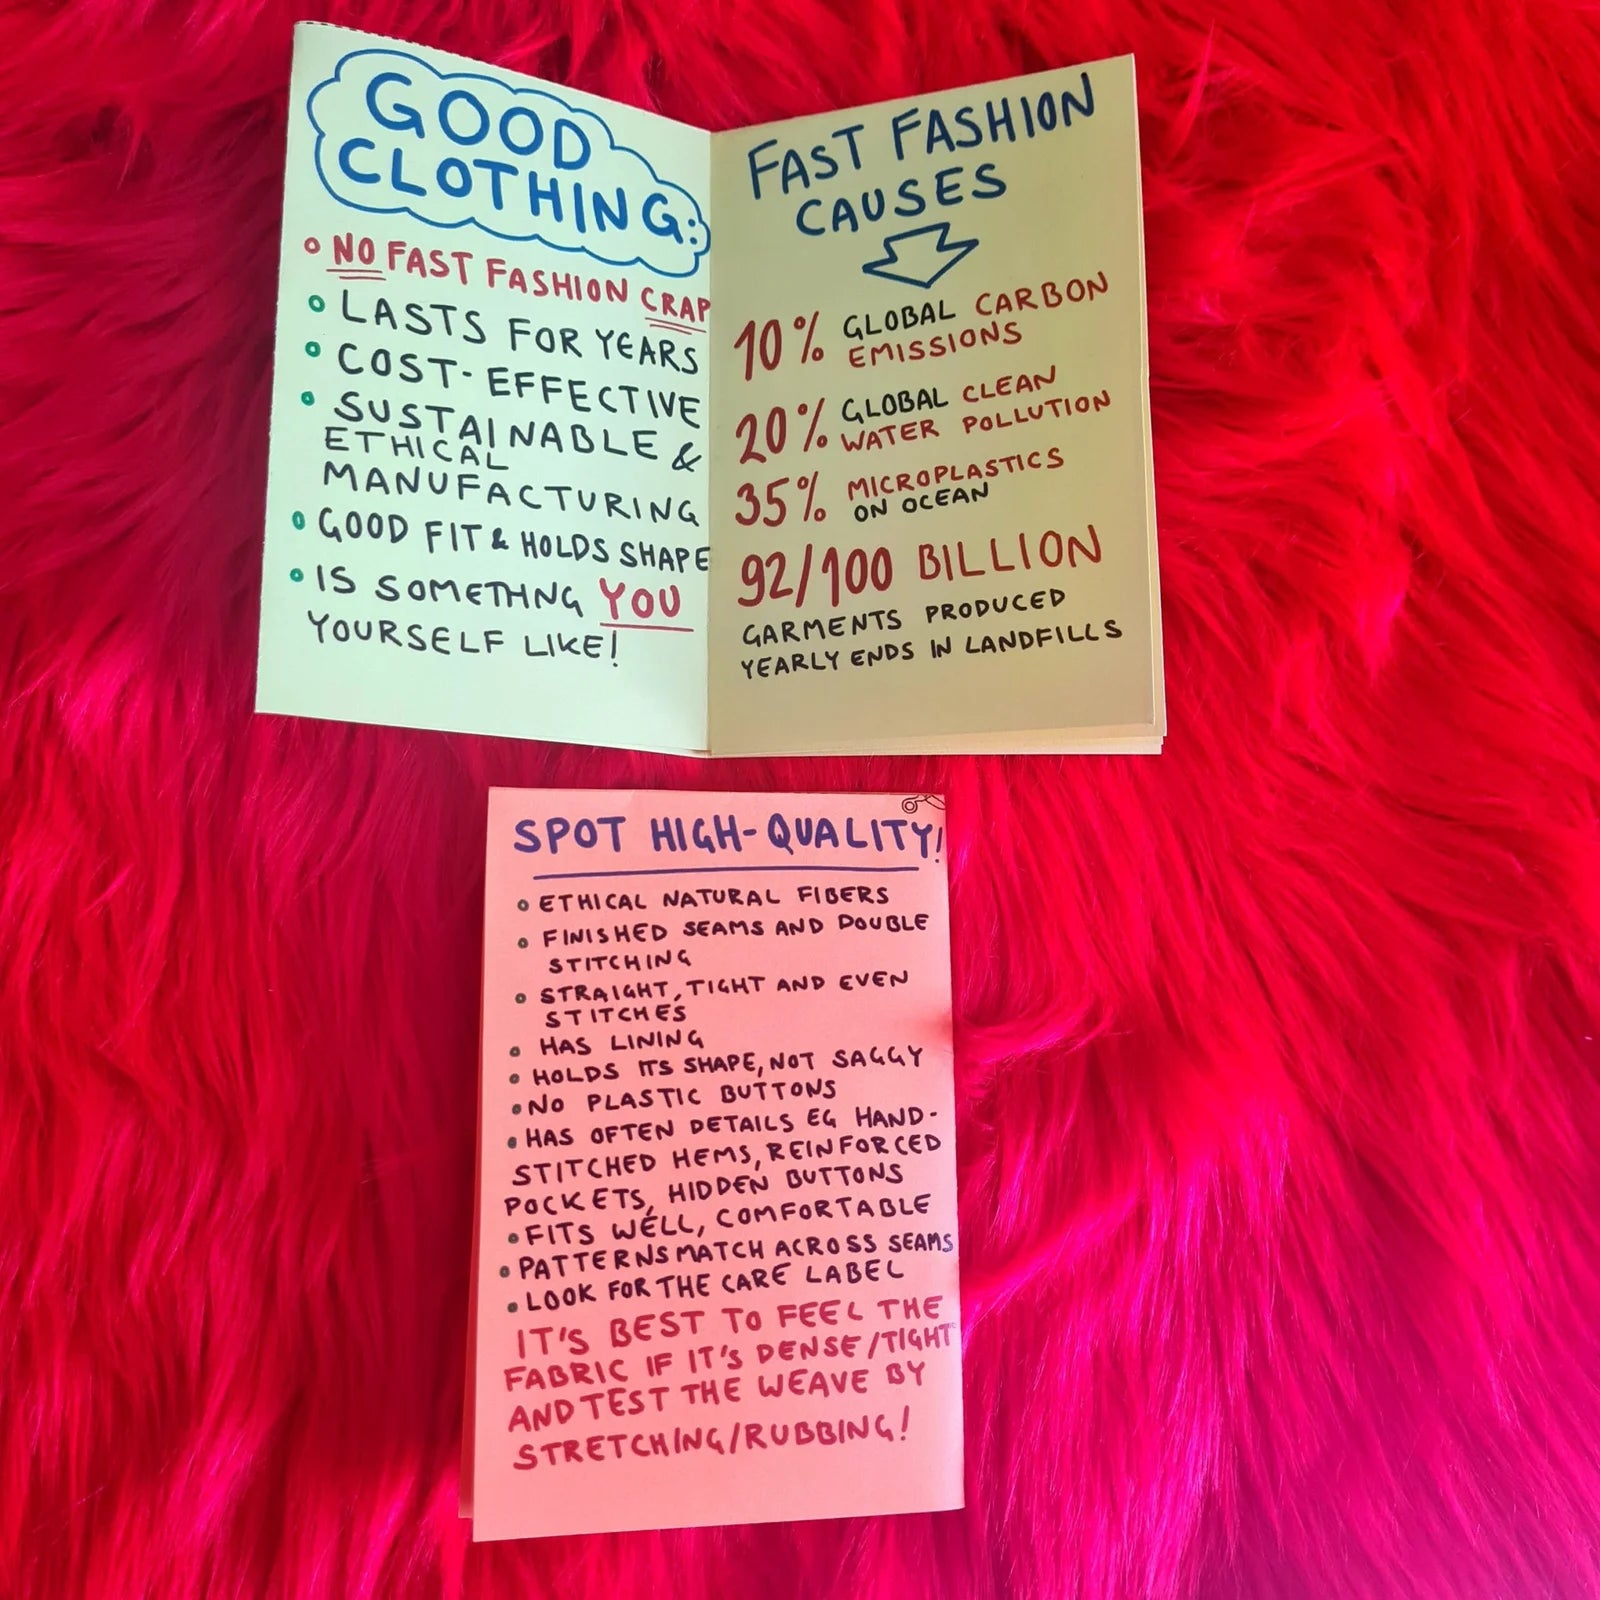 GOOD
CLOTHING:
NO FAST FASHION CRAP
LASTS FOR YEARS
COST-EFFECTIVE
SUSTAINABLE &
ETHICAL
MANUFACTURING
GOOD FIT & HOLDS SHAPE
IS SOMETHNG YOU
YOURSELF LIKE!
FAST FASHION
CAUSES
10% GLOBAL CARBON
EMISSIONS
20% GLOBAL CLEAN
WATER POLLUTION
35% MICROPLASTICS
ON OCEAN
92/100 BILLION
GARMENTS PRODUCED
YEARLY ENDS IN LANDFILLS
SPOT HIGH-QUALITY!
ETHICAL NATURAL FIBERS
FINISHED SEAMS AND DOUBLE
STITCHING
STRAIGHT, TIGHT AND EVEN
STITCHES
HAS LINING
HOLDS ITS SHAPE, NOT SAGGY
NO PLASTIC BUTTONS
HAS OFTEN DETAILS EG HAND-
STITCHED HEMS, REINFORCED
POCKETS, HIDDEN BUTTONS
FITS WELL, COMFORTABLE
PATTERNS MATCH ACROSS SEAMS
LOOK FOR THE CARE LABEL
IT'S BEST TO FEEL THE
FABRIC IF IT'S DENSE/TIGHT
AND TEST THE WEAVE BY
STRETCHING/RUBBING!